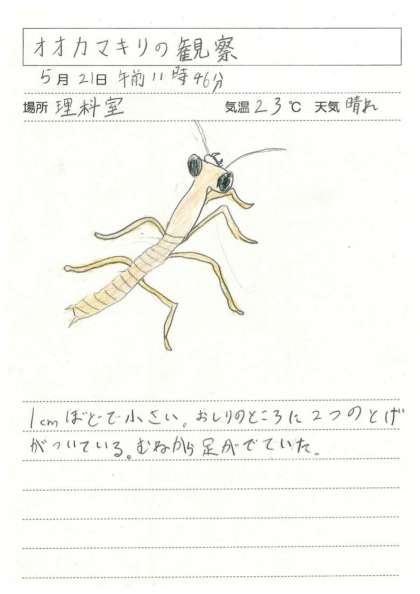 オオカマキリの観察
5月21日午前11時46分
場所 理科室 気温 23℃ 天気 晴れ
1cmほどで小さい。おしりのところに2つのとげ
がついている。むねから足がでていた。